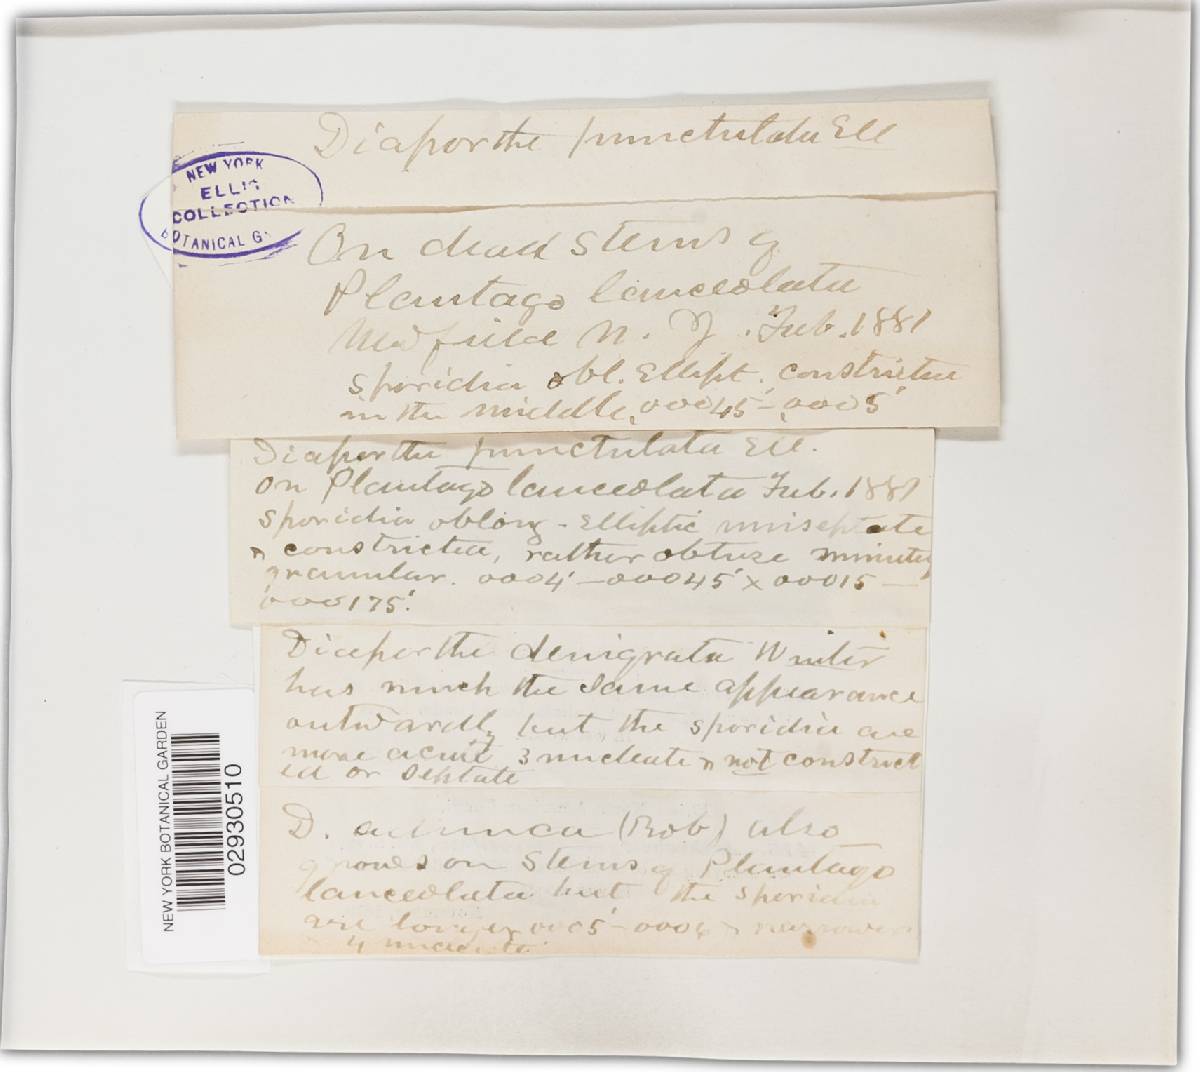 Diaporthe punctulata Ell
NEW YORK
ELLIS
COLLECTION
BOTANICAL G.
On dead stems of
Plantago lanceolata
N. J. Feb. 1881
sporidia obl. Ellipt. constricted
in the middle, .00045'-.0005'
Diaporthe punctulata Ell.
on Plantago lanceolata Feb. 1881
Sporidia oblong-Elliptic uniseptate
& constricted, rather obtuse minutely
granular. .0004'—.00045' x .00015—
.000175'.
Diaporthe denigrata Winter
has much the same appearance
outwardly but the sporidia are
more acute 3 nucleate & not constrict
ed or septate
D. adunca (Rob) also
grows on stems of Plantago
lanceolata but the sporidia
are longer .0005'-.0006 & narrower
4 nucleate
NEW YORK BOTANICAL GARDEN
02930510